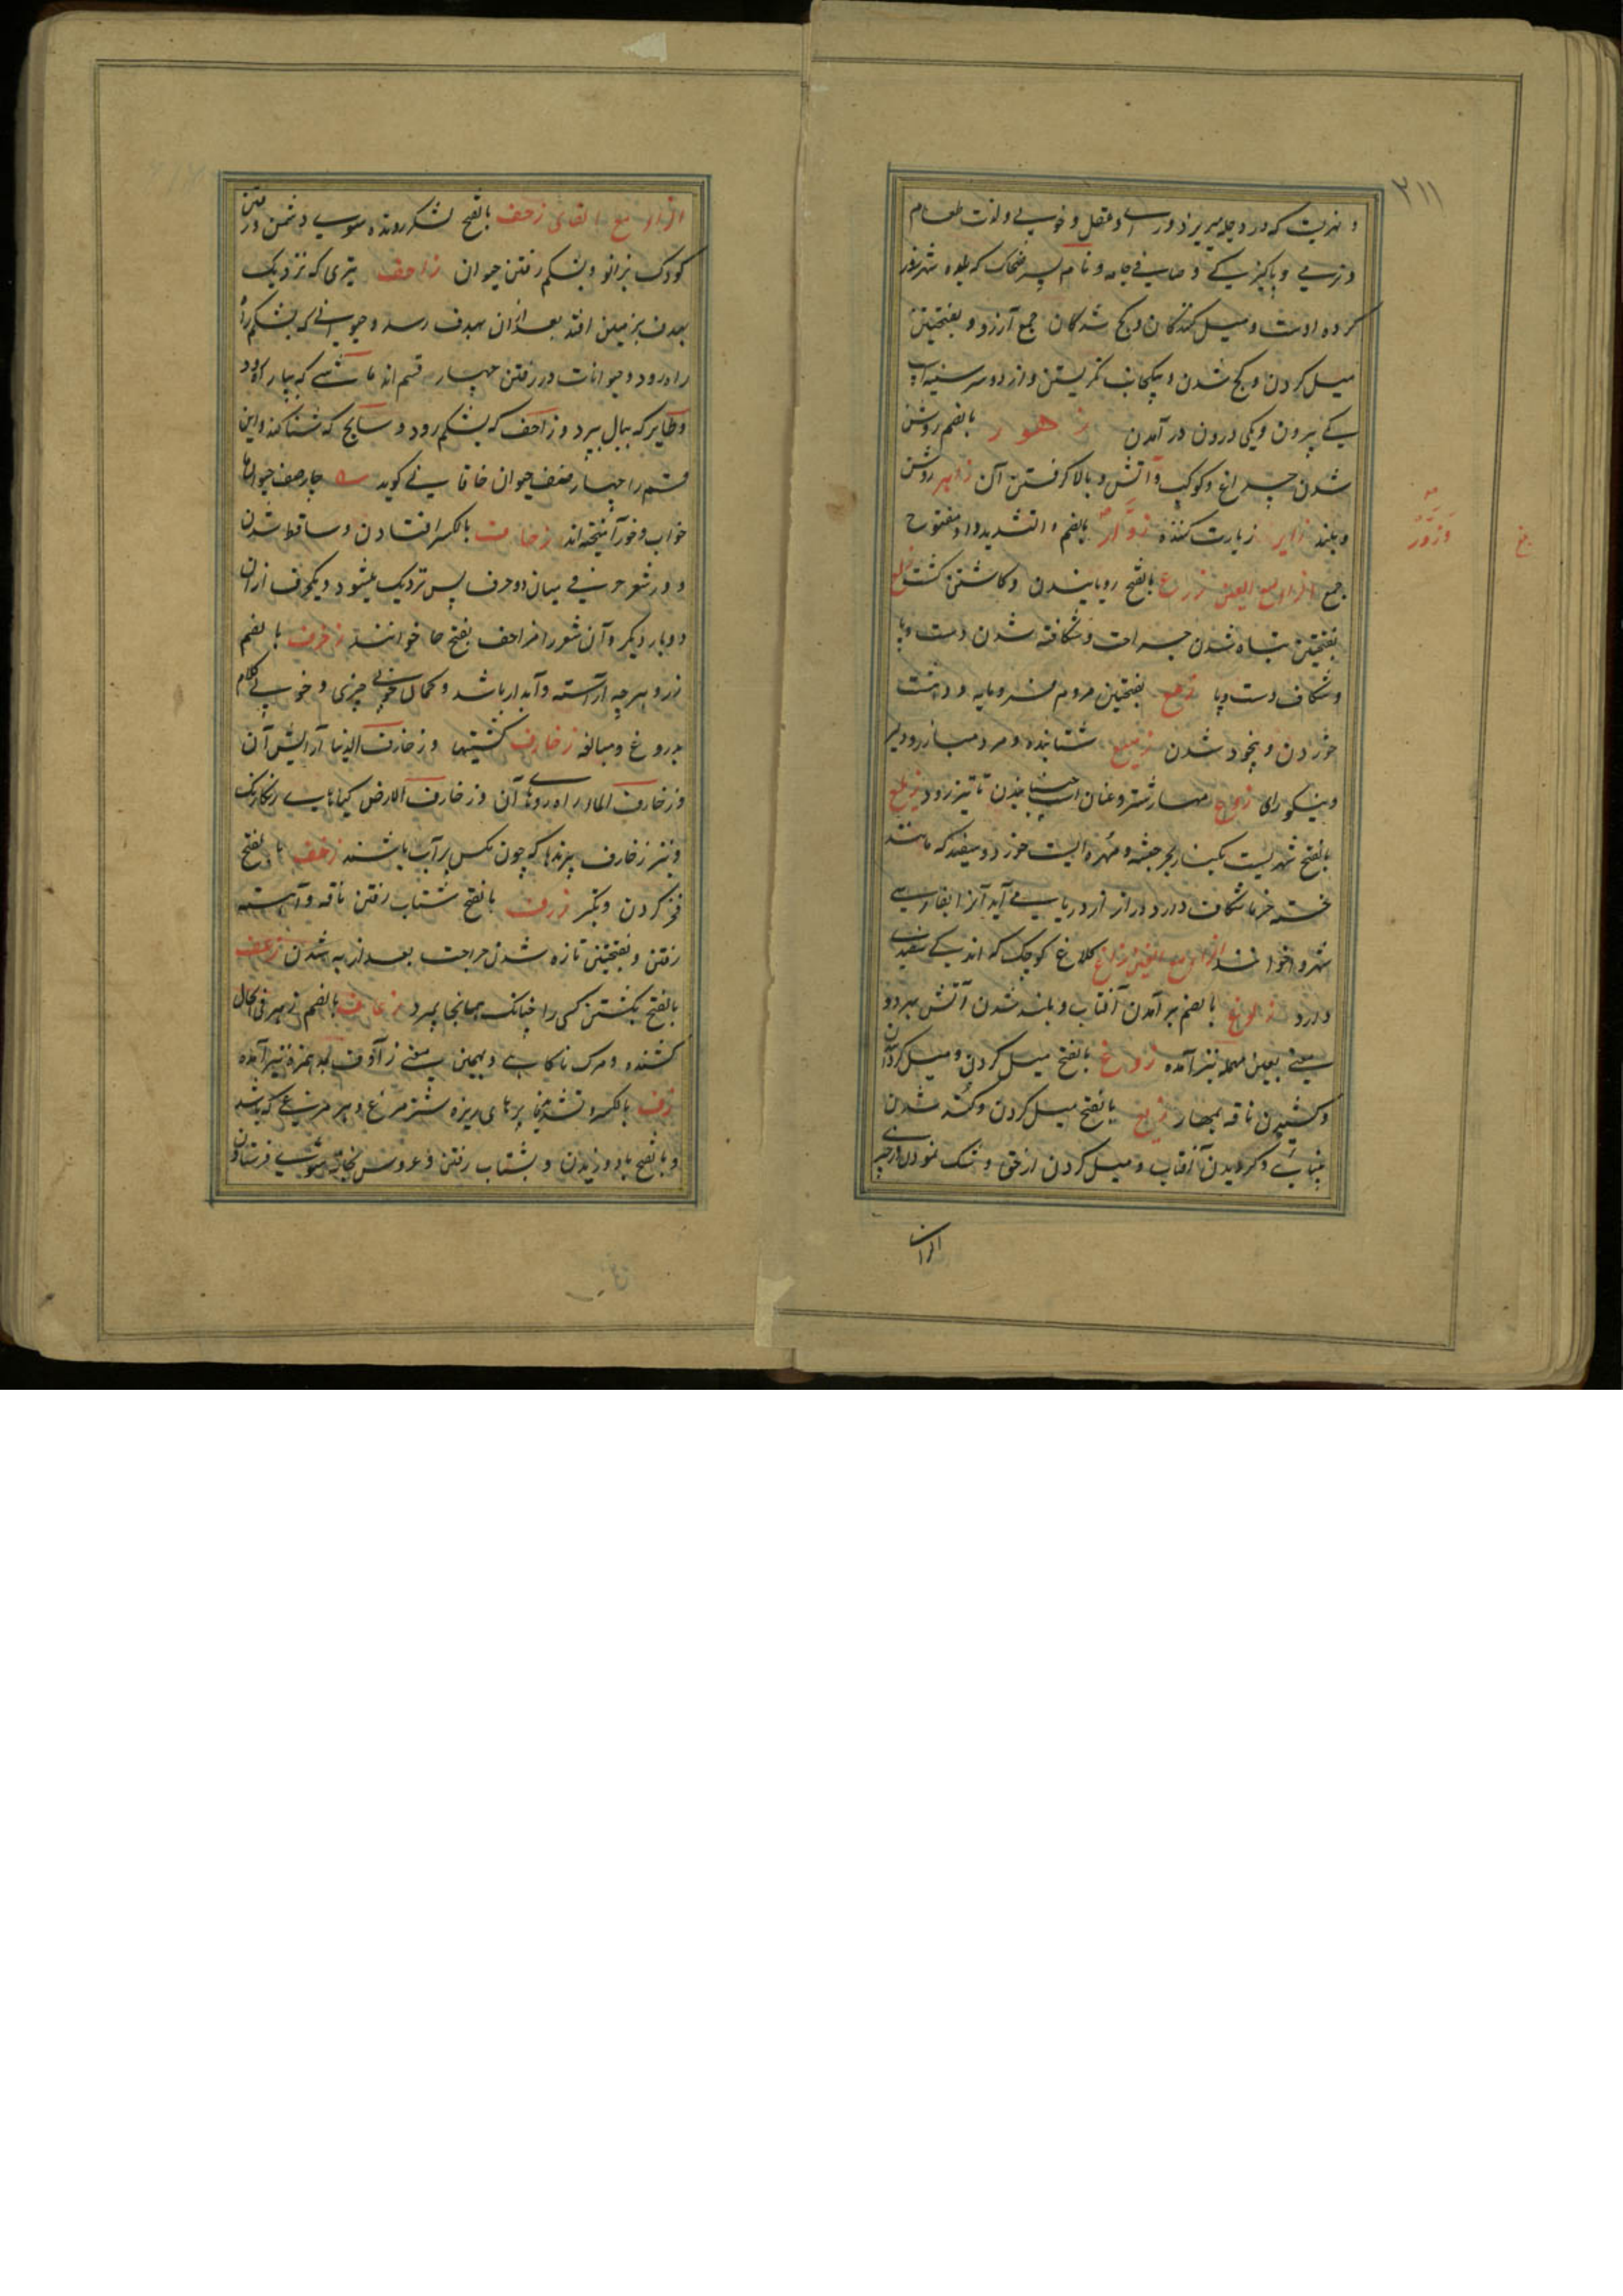 ۲۱۱
و نهریست که در دجله میریزد و رای و عقل و خوبی و لذت طعام
و نرمی و پاکیزگی و صافی جامه و نام پسر ضحاک که بلوه شهرزور
کرده اوست و میل کنندگان و کج شدگان جمع آزور و بفتحتین
میل کردن و کج شدن و بیکجانب نگریستن و از دو سر سینه اسپ
یکی بیرون و یکی درون در آمدن زهور بالضم روشن
شدن چراغ و کوکب و آتش و بالا گرفتن آن زاهر روشن
و بلند زایر زیارت کننده زوّار بالضم و التشدید واو مفتوح
جمع الزا مع العین زرع بالفتح رویانیدن و کاشتن کشت زلع
بفتحتین تباه شدن جراحت و شکافته شدن دست و پا
و شکاف دست و پا زمع بفتحتین مردم فرومایه و دهشت
خوردن و بیخود شدن زمیع شتابنده و مرد مبارز و دلیر
و نیکو رای زواع مهار شتر و عنان اسپ جنبانیدن تا تیز رود زیلع
بالفتح شهریست بکنار بحر حبشه و مهره ایست خورد و سفید که مانند
خسته خرما شکاف دارد و دراز از دریا می آید آنرا بفارسی
شهروا خوانند الزا مع الغین زاغ کلاغ کوچک که اندکی سفیدی
دارد زلوغ بالضم بر آمدن آفتاب و بلند شدن آتش بهر دو
معنی بعین مهمله نیز آمده زوغ بالفتح میل کردن و میل کردن
و کشیدن ناقه بمهار زیغ بالفتح میل کردن و کند شدن
بینائی و گردیدن آفتاب و میل کردن از حق و شک نمودن در چیزی
الزا
وزور
الزا مع الفای زحف بالفتح لشکر رونده سوی دشمن و رفتن
کودک بزانو و بشکم رفتن حیوان زاحف تیری که نزدیک
بهدف بزمین افتد بعد ازان بهدف رسد و حیوانی که بشکم
راه رود و حیوانات در رفتن چهار قسم اند ماشی که بپا راه رود
و طایر که ببال بپرد و زاحف که بشکم رود و سابح که شنا کند و این
قسم را چهار صنف حیوان خاقانی گوید چار صنف حیوان را
خواب و خور آمیخته اند زحافت بالکسر افتادن و ساقط شدن
و در شعر حرفی میان دو حرف پس نزدیک میشود و یکحرف ازان
دو بار دیگر و آن شعر را مزاحف بفتح حا خوانند زخرف بالضم
زر و هر چه آراسته و آبدار باشد و کمال خوبی چیزی و خوبی کلام
بدروغ و مبالغه زخارف کشتیها و زخارف الدنیا آرایش آن
و زخارف الماء راه رودهای آن و زخارف الارض گیاههای رنگارنگ
و نیز زخارف پرندها که چون مگس بر آب باشند زخف بالفتح
فخر کردن و تکبر زرف بالفتح شتاب رفتن ناقه و آهسته
رفتن و بفتحتین تازه شدن جراحت بعد از به شدن زعف
بالفتح بکشتن کسی را چنانکه همانجا بمیرد زعاف بالضم زهر فی الحال
کشنده و مرگ ناگاهی و بهمین معنی زآوف بمد همزه نیز آمده
زف بالکسر و تشدید فا پرهای ریزه شتر مرغ و هر مرغی که باشد
و بالفتح باد وزیدن و بشتاب رفتن و عروس بخانه شوئی فرستادن